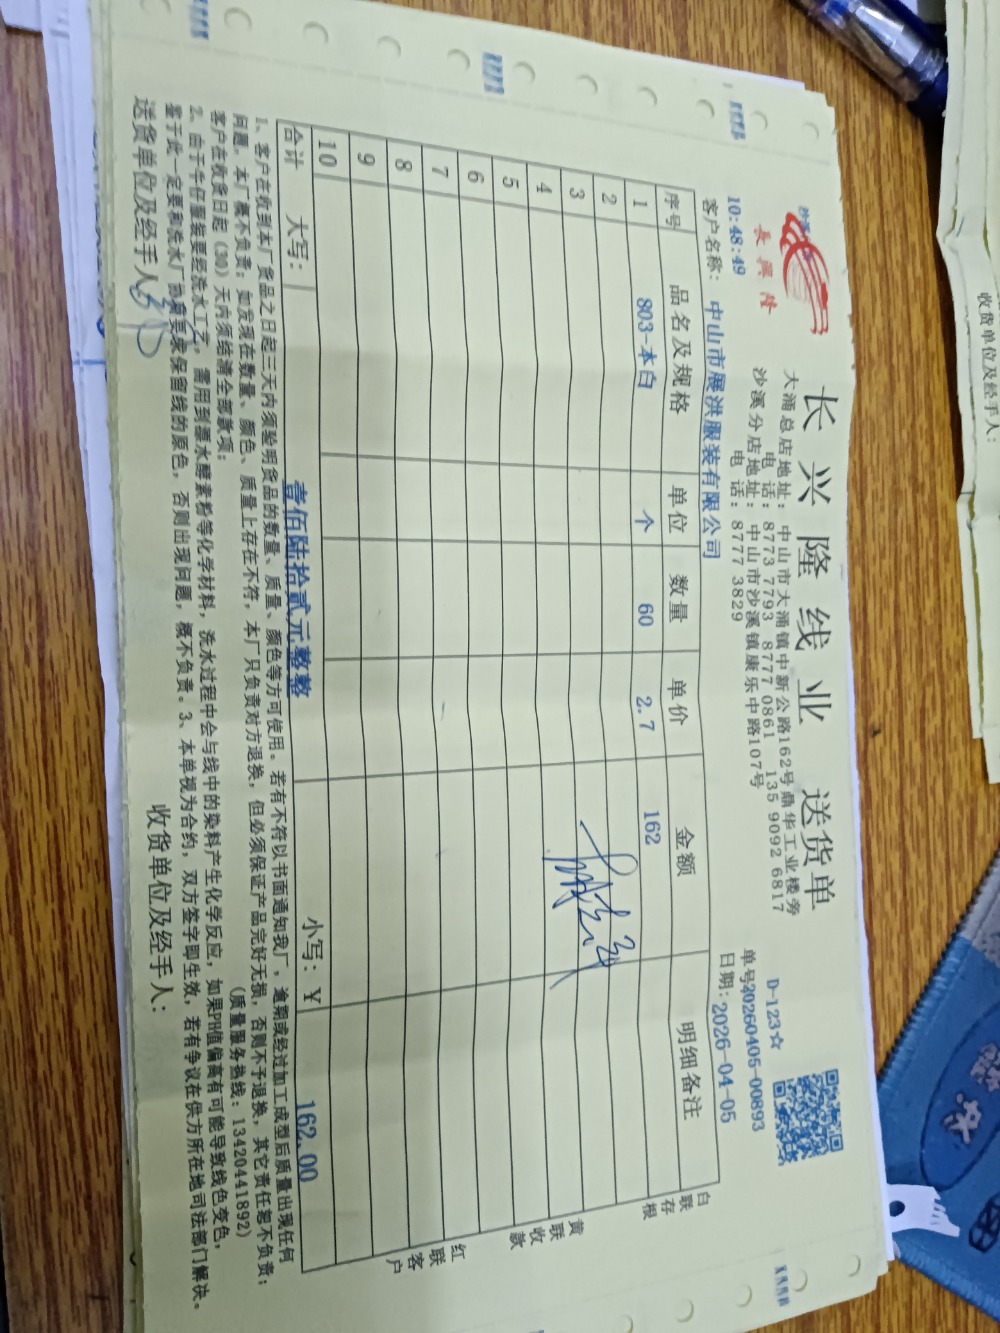 长兴隆线业 送货单
長興隆
大涌总店地址: 中山市大涌镇中新公路162号鼎华工业楼旁
电 话: 8773 7793 8777 0861 135 9092 6817
沙溪分店地址: 中山市沙溪镇康乐中路107号
电 话: 8777 3829
D-123☆
单号20260405-00893
10:48:49
客户名称: 中山市展洪服装有限公司
日期: 2026-04-05
序号 品名及规格 单位 数量 单价 金额 明细备注
1 803-本白 个 60 2.7 162
2
3
4
5
6
7
8
9
10
合计 大写: 壹佰陆拾贰元整整 小写: ¥ 162.00
白联存根
黄联收款
红联客户
1、客户在收到本厂货品之日起三天内须验明货品的数量、质量、颜色等方可使用。若有不符以书面通知我厂,逾期或经过加工成型后质量出现任何
问题,本厂概不负责;如发现在数量、颜色、质量上存在不符,本厂只负责对方退换,但必须保证产品完好无损,否则不予退换,其它责任恕不负责;
客户在收货日起(30)天内须结清全部款项; (质量服务热线:13420441892)
2、由于牛仔服装要经洗水工艺,需用到漂水酵素粉等化学材料,洗水过程中会与线中的染料产生化学反应,如果PH值偏高有可能导致线色变色,
鉴于此一定要和洗水厂协商要求保留线的原色,否则出现问题,概不负责。3、本单视为合约,双方签字即生效,若有争议在供方所在地司法部门解决。
送货单位及经手人:
收货单位及经手人:
收货单位及经手人: